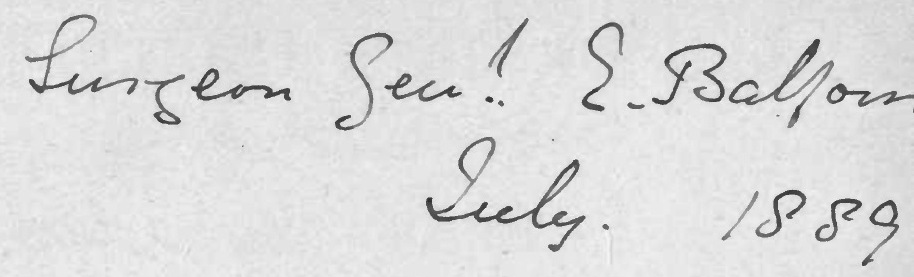 Surgeon Genl. E. Balfour
July. 1889